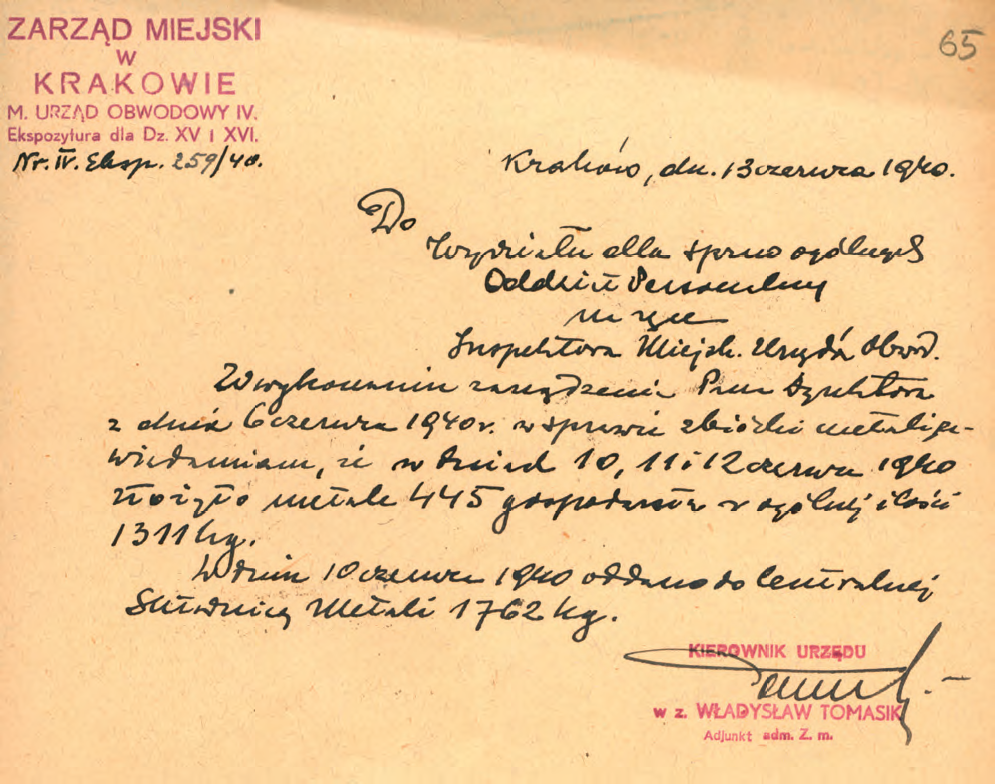 ZARZĄD MIEJSKI
W
KRAKOWIE
M. URZĄD OBWODOWY IV.
Ekspozytura dla Dz. XV i XVI.
Nr. IV. Eksp. 259/40.
65
Kraków, dn. 13 czerwca 1940.
Do
Wydziału dla spraw ogólnych
Oddział Personalny
na ręce
Inspektora Miejsk. Urzęd. Obwod.
W wykonaniu zarządzenia Pana Dyrektora
z dnia 6 czerwca 1940 r. w sprawie zbiórki metali za-
wiadamiam, że w dniach 10, 11 i 12 czerwca 1940
złożyło metale 445 gospodarstw w ogólnej ilości
1311 kg.
W dniu 10 czerwca 1940 oddano do Centralnej
Składnicy Metali 1762 kg.
KIEROWNIK URZĘDU
w z. WŁADYSŁAW TOMASIK
Adjunkt adm. Z. m.